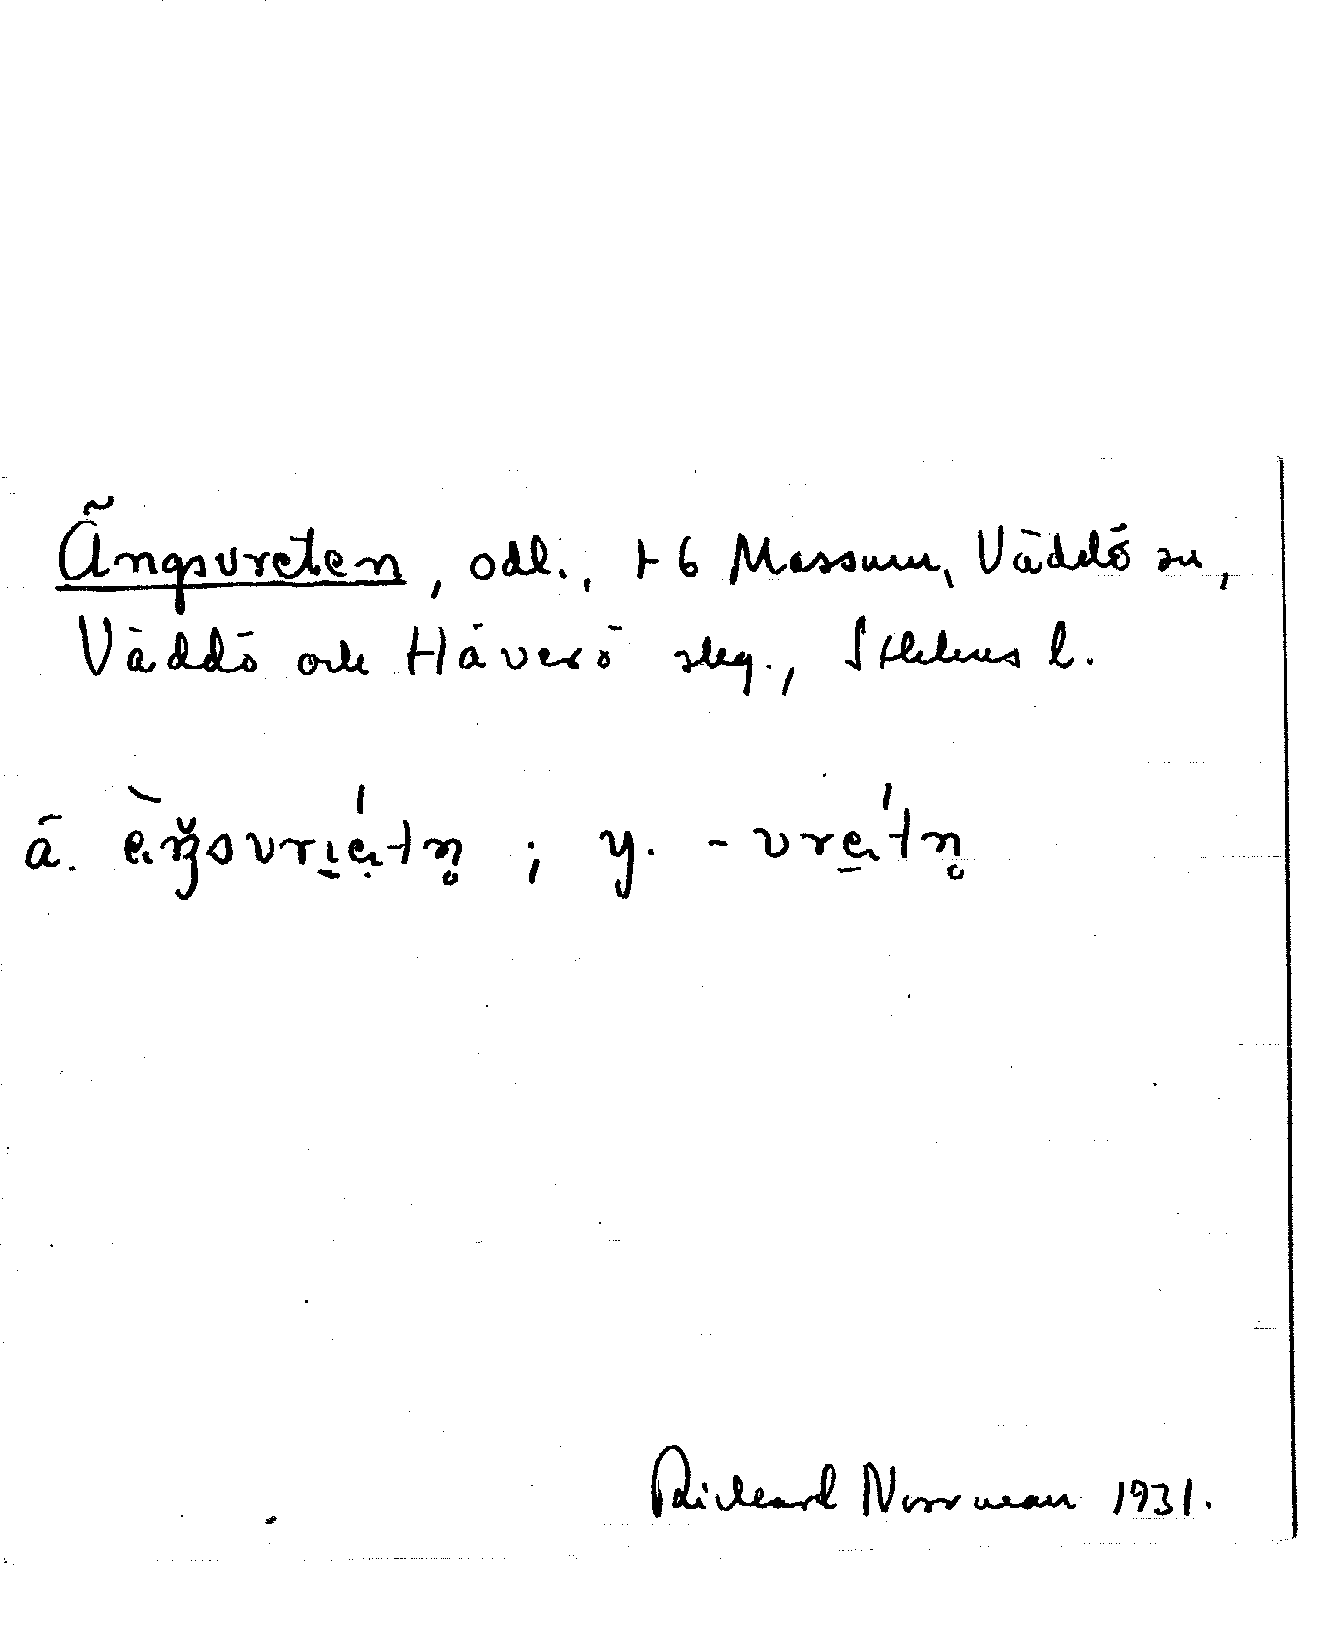 Ängsvreten, odl., t 6 Massum, Väddö sn,
Väddö och Häverö skg., Sthlms l.
ä. ; y. -vretn̥
Rickard Norrman 1931.